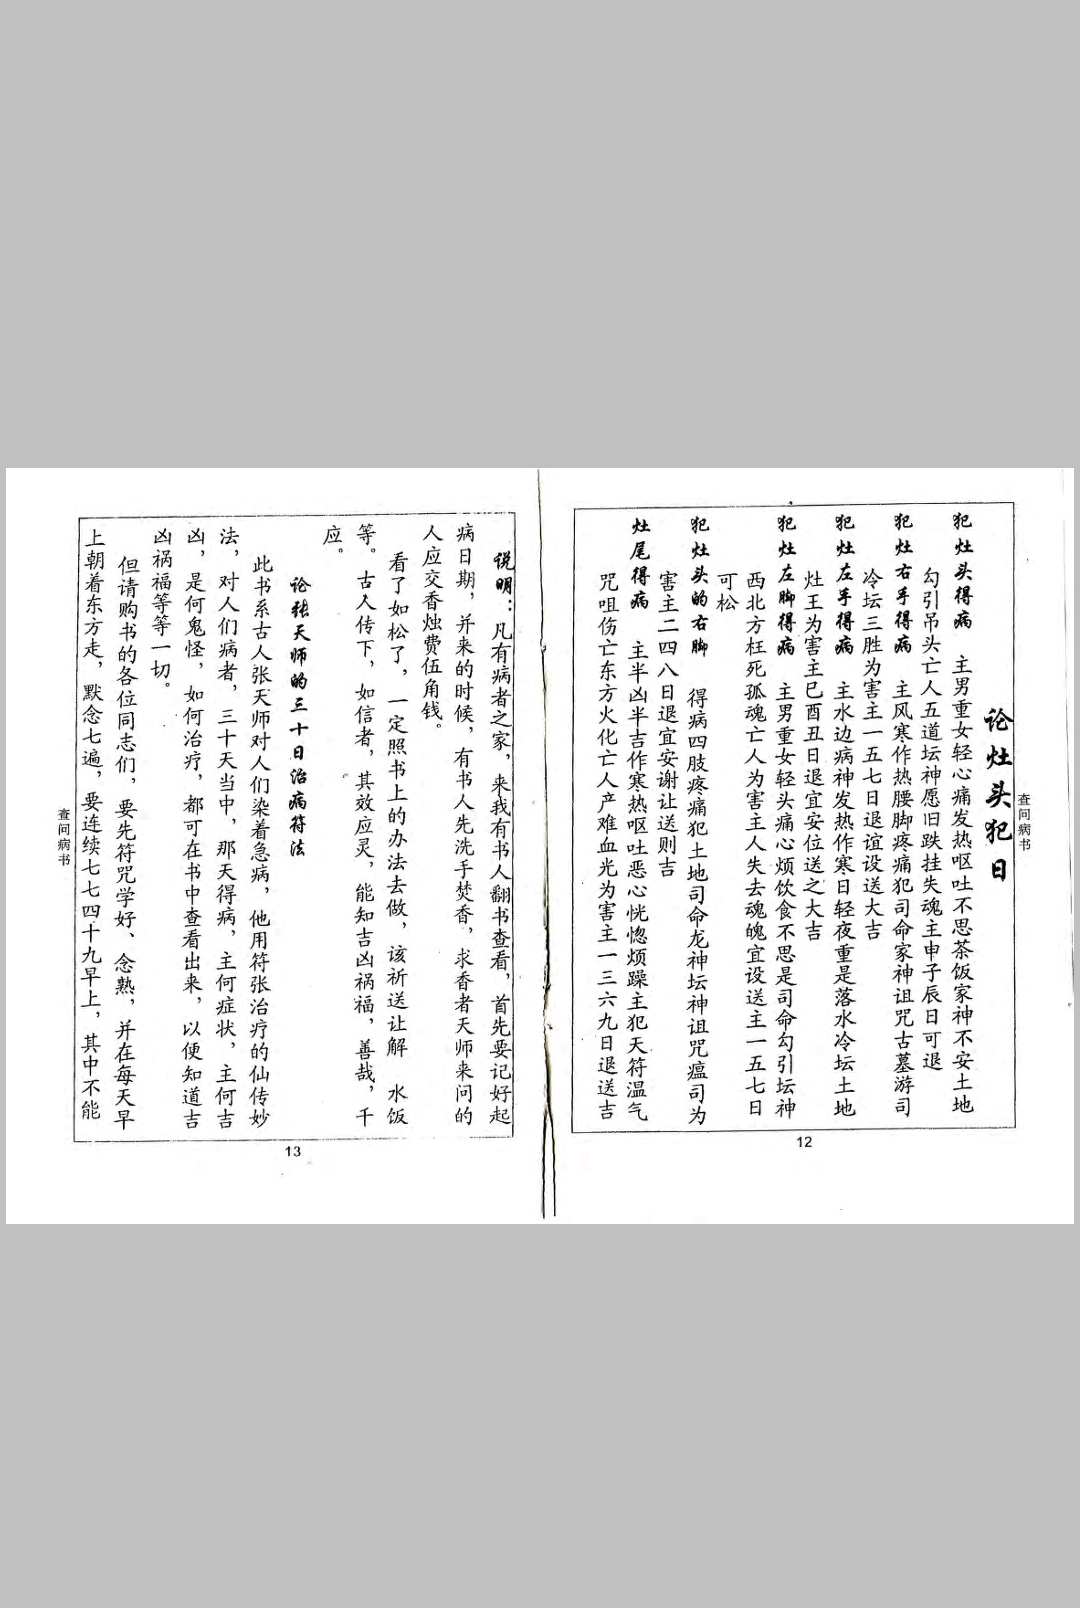 查问病书
论灶头犯日
犯灶头得病 主男重女轻心痛发热呕吐不思茶饭家神不安土地
勾引吊头亡人五道坛神愿旧跌挂失魂主申子辰日可退
犯灶右手得病 主风寒作热腰脚疼痛犯司命家神诅咒古墓游司
冷坛三胜为害主一五七日退谊设送大吉
犯灶左手得病 主水边病神发热作寒日轻夜重是落水冷坛土地
灶王为害主巳酉丑日退宜安位送之大吉
犯灶左脚得病 主男重女轻头痛心烦饮食不思是司命勾引坛神
西北方枉死孤魂亡人为害主人失去魂魄宜设送主一五七日
可松
犯灶头的右脚 得病四肢疼痛犯土地司命龙神坛神诅咒瘟司为
害主二四八日退宜安谢让送则吉
灶尾得病 主半凶半吉作寒热呕吐恶心恍惚烦躁主犯天符温气
咒咀伤亡东方火化亡人产难血光为害主一三六九日退送吉
12
说明：凡有病者之家，来我有书人翻书查看，首先要记好起
病日期，并来的时候，有书人先洗手焚香，求香者天师来问的
人应交香烛费伍角钱。
看了如松了，一定照书上的办法去做，该祈送让解 水饭
等。古人传下，如信者，其效应灵，能知吉凶祸福，善哉，千
应。
论张天师的三十日治病符法
此书系古人张天师对人们染着急病，他用符张治疗的仙传妙
法，对人们病者，三十天当中，那天得病，主何症状，主何吉
凶，是何鬼怪，如何治疗，都可在书中查看出来，以便知道吉
凶祸福等等一切。
但请购书的各位同志们，要先符咒学好、念熟，并在每天早
上朝着东方走，默念七遍，要连续七七四十九早上，其中不能
查问病书
13